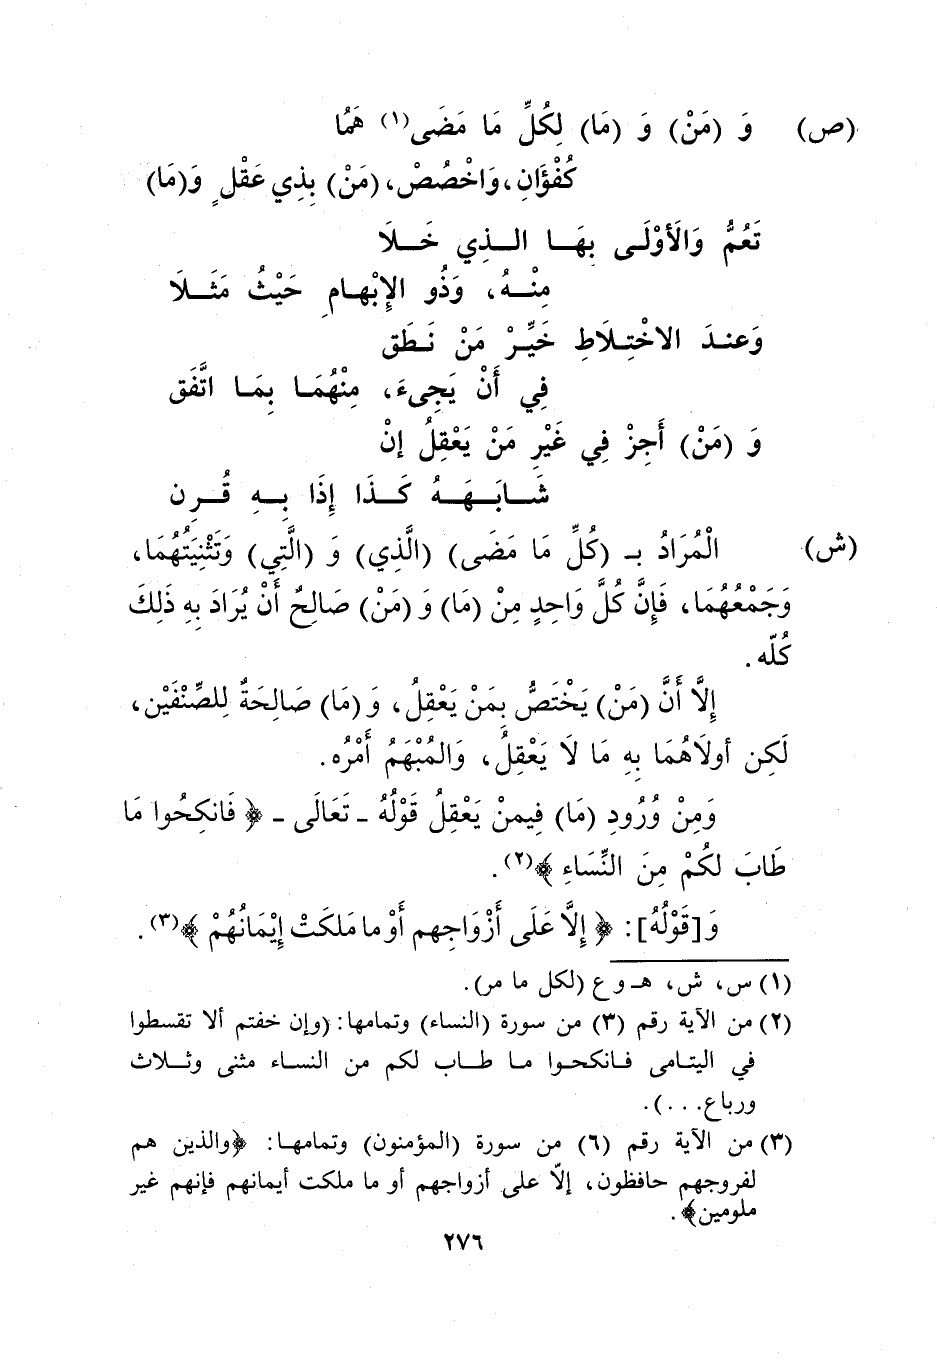 (ص) وَ (مَنْ) وَ (مَا) لِكُلِّ مَا مَضَى(١) هَمُا
كُفْؤَانِ، وَاخْصُصْ، (مَنْ) بِذِي عَقْلٍ وَ(مَا)
تَعُمُّ وَالَأوْلَـى بِهَـا الـذِي خَـلَا
مِنْـهُ، وَذُو الإِبْهـامِ حَيْثُ مَثَـلَا
وَعنـدَ الاخْتِـلَاطِ خَيِّـرْ مَنْ نَـطَق
فِي أَنْ يَجِىءَ، مِنْهُمَـا بِمَـا اتَّفَق
وَ (مَنْ) أَجِزْ فِي غَيْرِ مَنْ يَعْقِلُ إنْ
شَـابَـهَـهُ كَـذَا إِذَا بِـهِ قُـرِن
(ش) الْمُرَادُ بـ (كُلِّ مَا مَضَى) (الَّذِي) وَ (الَّتِي) وَتَثْنِيَتُهُمَا،
وَجَمْعُهُمَا، فَإِنَّ كُلَّ وَاحِدٍ مِنْ (مَا) وَ (مَنْ) صَالِحٌ أَنْ يُرَادَ بِهِ ذَلِكَ
كُلّه.
إِلَّا أَنَّ (مَنْ) يَخْتَصُّ بِمَنْ يَعْقِلُ، وَ(مَا) صَالِحَةٌ لِلصِّنْفَيْنِ،
لَكِن أولَاهُمَا بِهِ مَا لَا يَعْقِلُ، وَالمُبْهَمُ أَمْرُه.
وَمِنْ وُرُودِ (مَا) فِيمنْ يَعْقِلُ قَوْلُهُ ـ تَعَالَى ـ ﴿ فَانكِحُوا مَا
طَابَ لَكُمْ مِنَ النِّسَاءِ ﴾(٢).
وَ[قَوْلُهُ]: ﴿ إِلَّا عَلَى أَزْوَاجِهِم أَوْ ما مَلَكَتْ إِيْمَانُهُمْ ﴾(٣).
(١) س، ش، هـ وع (لكل ما مر).
(٢) من الآية رقم (٣) من سورة (النساء) وتمامها: (وإن خفتم ألا تقسطوا
في اليتـامى فـانكحـوا مـا طـاب لكم من النسـاء مثنى وثـلاث
ورباع. . .).
(٣) من الآية رقم (٦) من سورة (المؤمنون) وتمامهـا: ﴿والذين هم
لفروجهم حافظون، إلّا على أزواجهم أو ما ملكت أيمانهم فإنهم غير
ملومين﴾.
٢٧٦